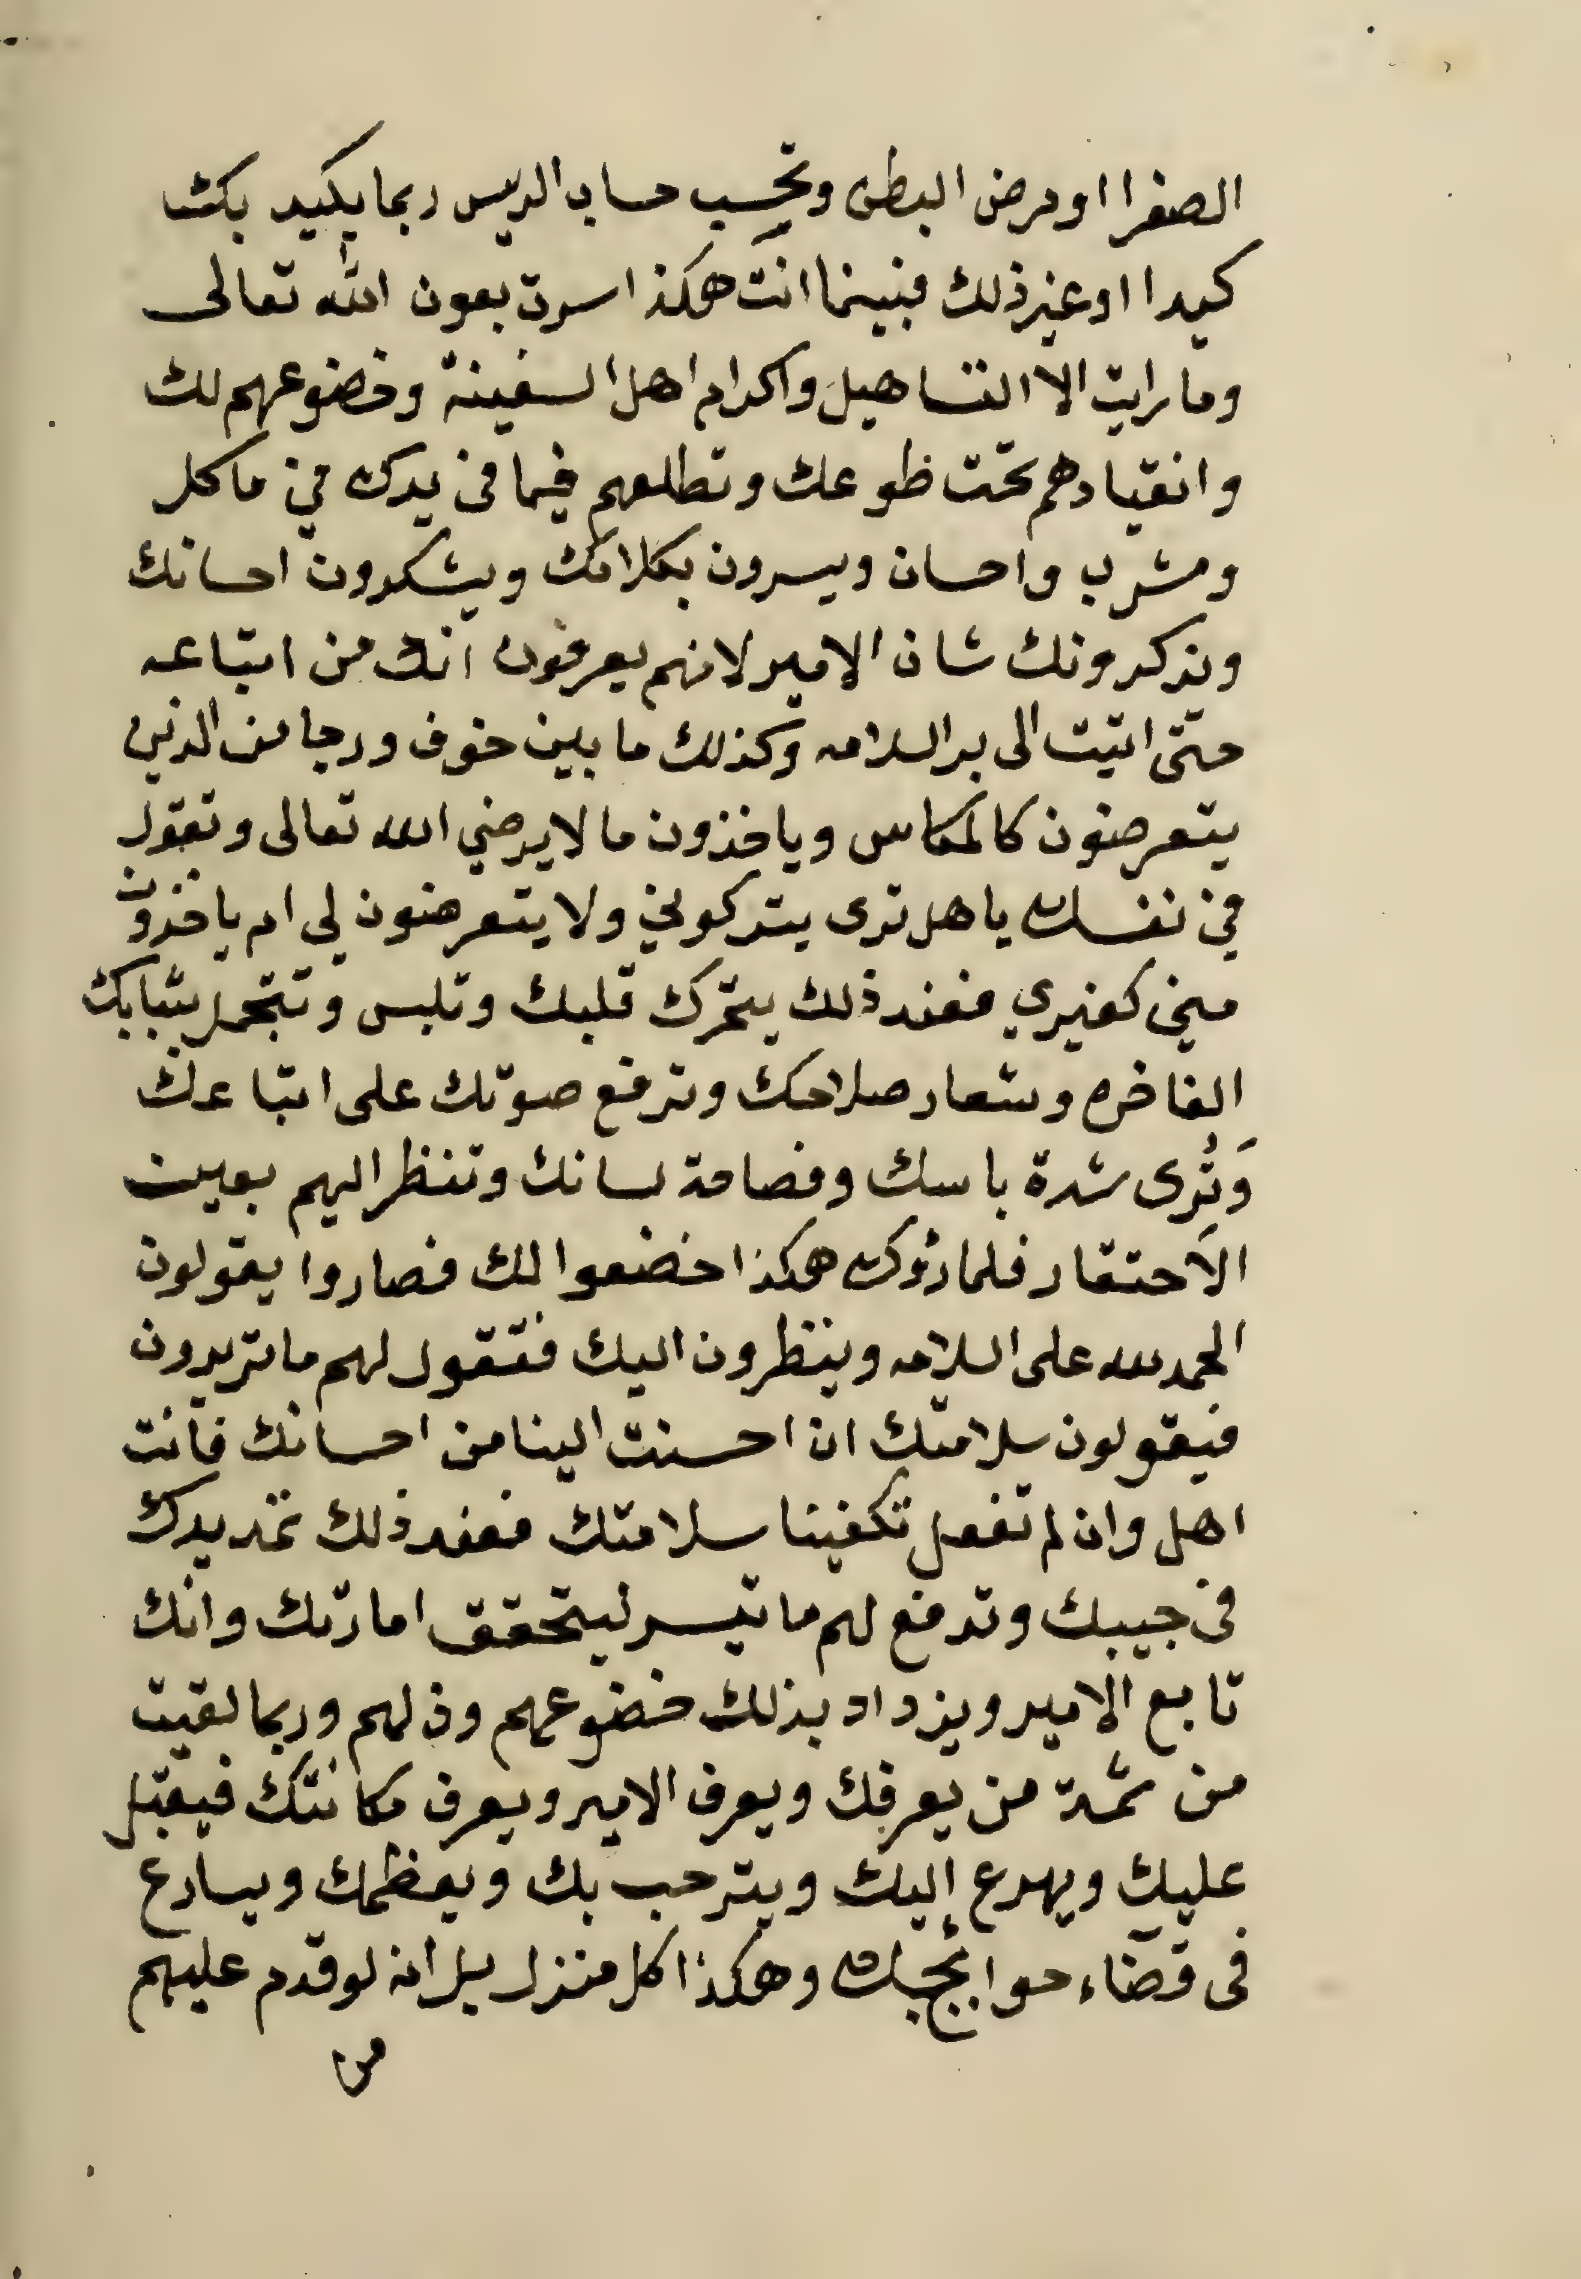 الصفرا او مرض البطن وتحسب حساب الريس ربما يكيد بك
كيدا او غير ذلك فبينما انت هكذا اسرت بعون الله تعالى
وما رايت الا التساهيل واكرام اهل السفينة وخضوعهم لك
وانقيادهم تحت طوعك وتطلعهم فيما فى يدك من ماكل
ومشرب واحسان ويسرون بكلامك ويشكرون احسانك
ويذكرونك شان الامير لانهم يعرفون انك من اتباعه
حتى اتيت الى بر السلامه وكذلك ما بين خوف ورجا من الذين
يتعرضون كالمكاس وياخذون ما لا يرضي الله تعالى وتقول
في نفسك يا هل ترى يتركوني ولا يتعرضون لي ام ياخذون
مني كغيري فعند ذلك يتحرك قلبك وتلبس وتتجمل بثيابك
الفاخره وشعار صلاحك وترفع صوتك على اتباعك
وَتُرِى شدة باسك وفصاحة لسانك وتنظر اليهم بعين
الاحتقار فلما رأوك هكذا خضعوا لك فصاروا يقولون
الحمد لله على السلامه وينظرون اليك فتقول لهم ما تريدون
فيقولون سلامتك ان احسنت الينا من احسانك فانت
اهل وان لم تفعل تكفينا سلامتك فعند ذلك تمد يدك
فى جيبك وتدفع لهم ما تيسر ليتحقق امارتك وانك
تابع الامير ويزداد بذلك خضوعهم وذلهم وربما لقيت
من ثمة من يعرفك ويعرف الامير ويعرف مكانتك فيقبل
عليك ويهرع إليك ويترحب بك ويعظمك ويسارع
فى قضاء حوائجك وهكذا كل منزل بل انه لو قدم عليهم
من